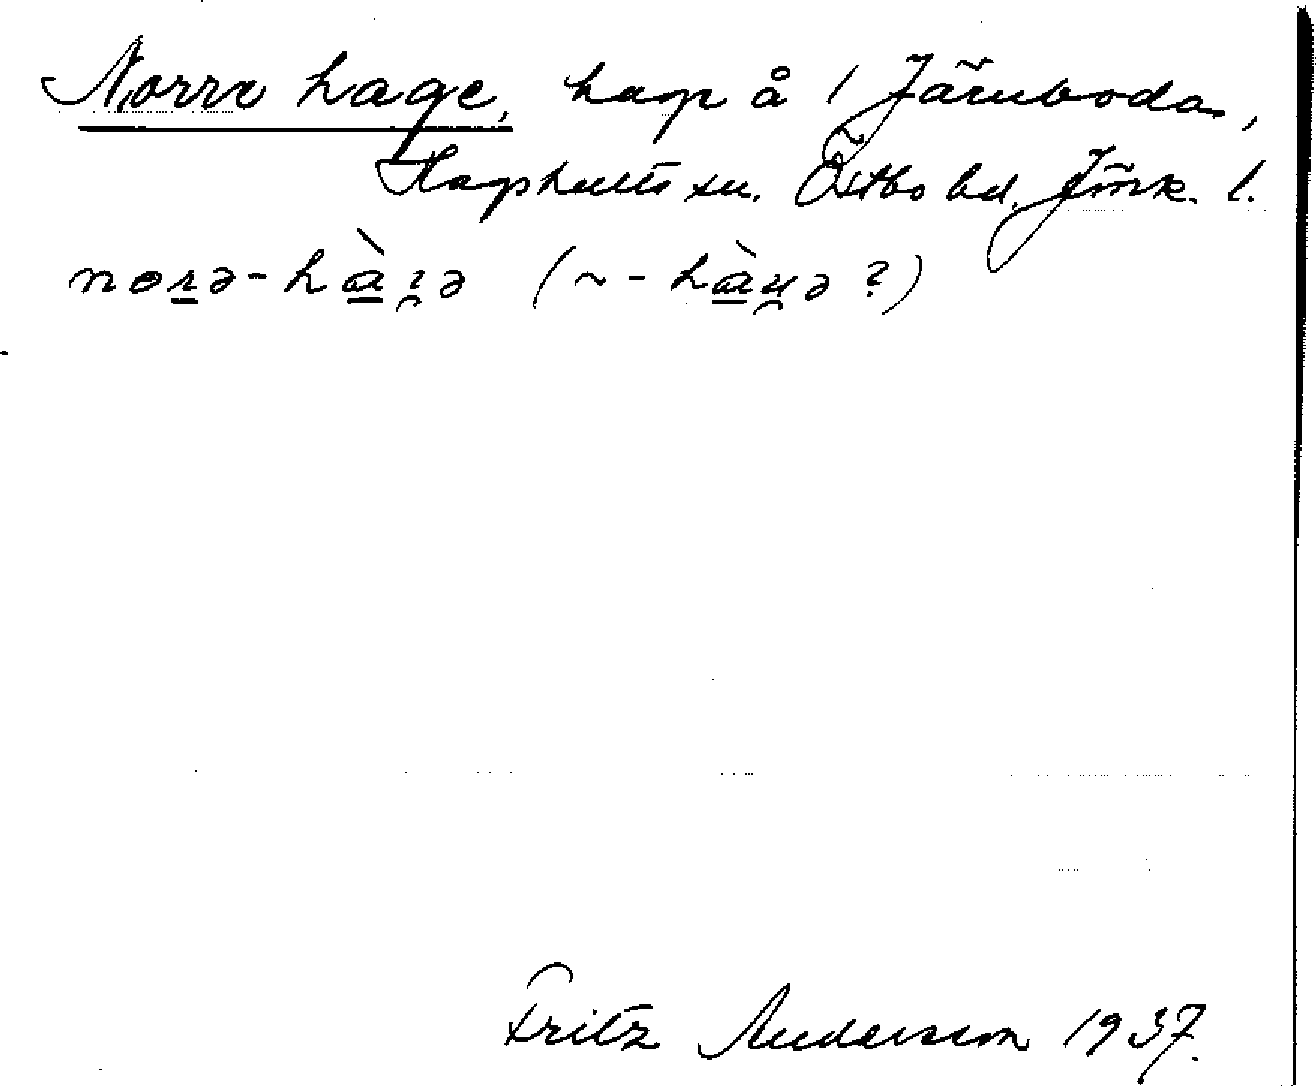 Norre hage, hage å / Järnboda,
Hagshults sn. Östbo hd. Jönk. l.
norə-hàɿə (~-hàꭒə ?)
Fritz Anderson 1937.